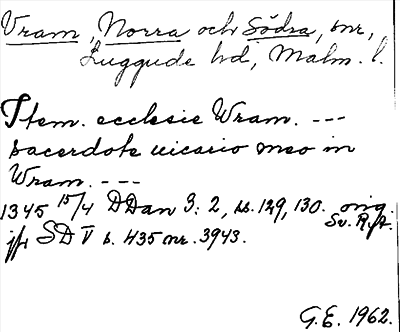 Vram, Norra och Södra, snr,
Luggude hd, Malm. l.
Item. ecclesie Wram. ---
sacerdote uicario meo in
Wram. ---
1345 15/4 DDan 3: 2, ss. 129, 130. orig.
Sv. R.A.
jfr SD V s. 435 nr. 3943.
G.E. 1962.